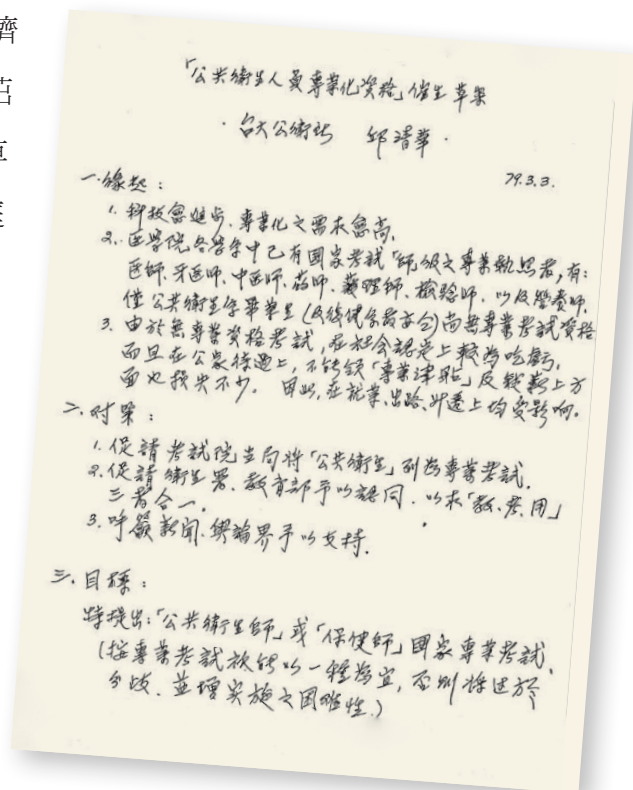 「公共衛生人員專業化資格」催生草案
·台大公衛所 邱清華·
79.3.3.
一.緣起:
1. 科技愈進步,專業化之需求愈高。
2. 医學院各學系中已有國家考試「師」級之專業執照者,有:
医師、牙医師、中医師、药師、護理師、檢驗師、以及營養師,
僅公共衛生學系畢業生(及復健系首亦合)尚無專業考試資格
3. 由於無專業資格考試,在社會認定上較為吃虧,
而且在公家待遇上,不能領「專業津貼」及錢薪上方
面也損失不少。因此,在就業、出路、外透上均受影响。
二.对策:
1. 促請考試院當局將「公共衛生」列為專業考試.
2. 促請衛生署、教育部予以認同.以求「教、考、用」
三者合一。
3. 呼籲新聞、輿論界予以支持.
三.目標:
特提出:「公共衛生師」或「保健師」國家專業考試、
(按專業考試放能以一種為宜,否則將过於
分歧、並增実施之困难性.)